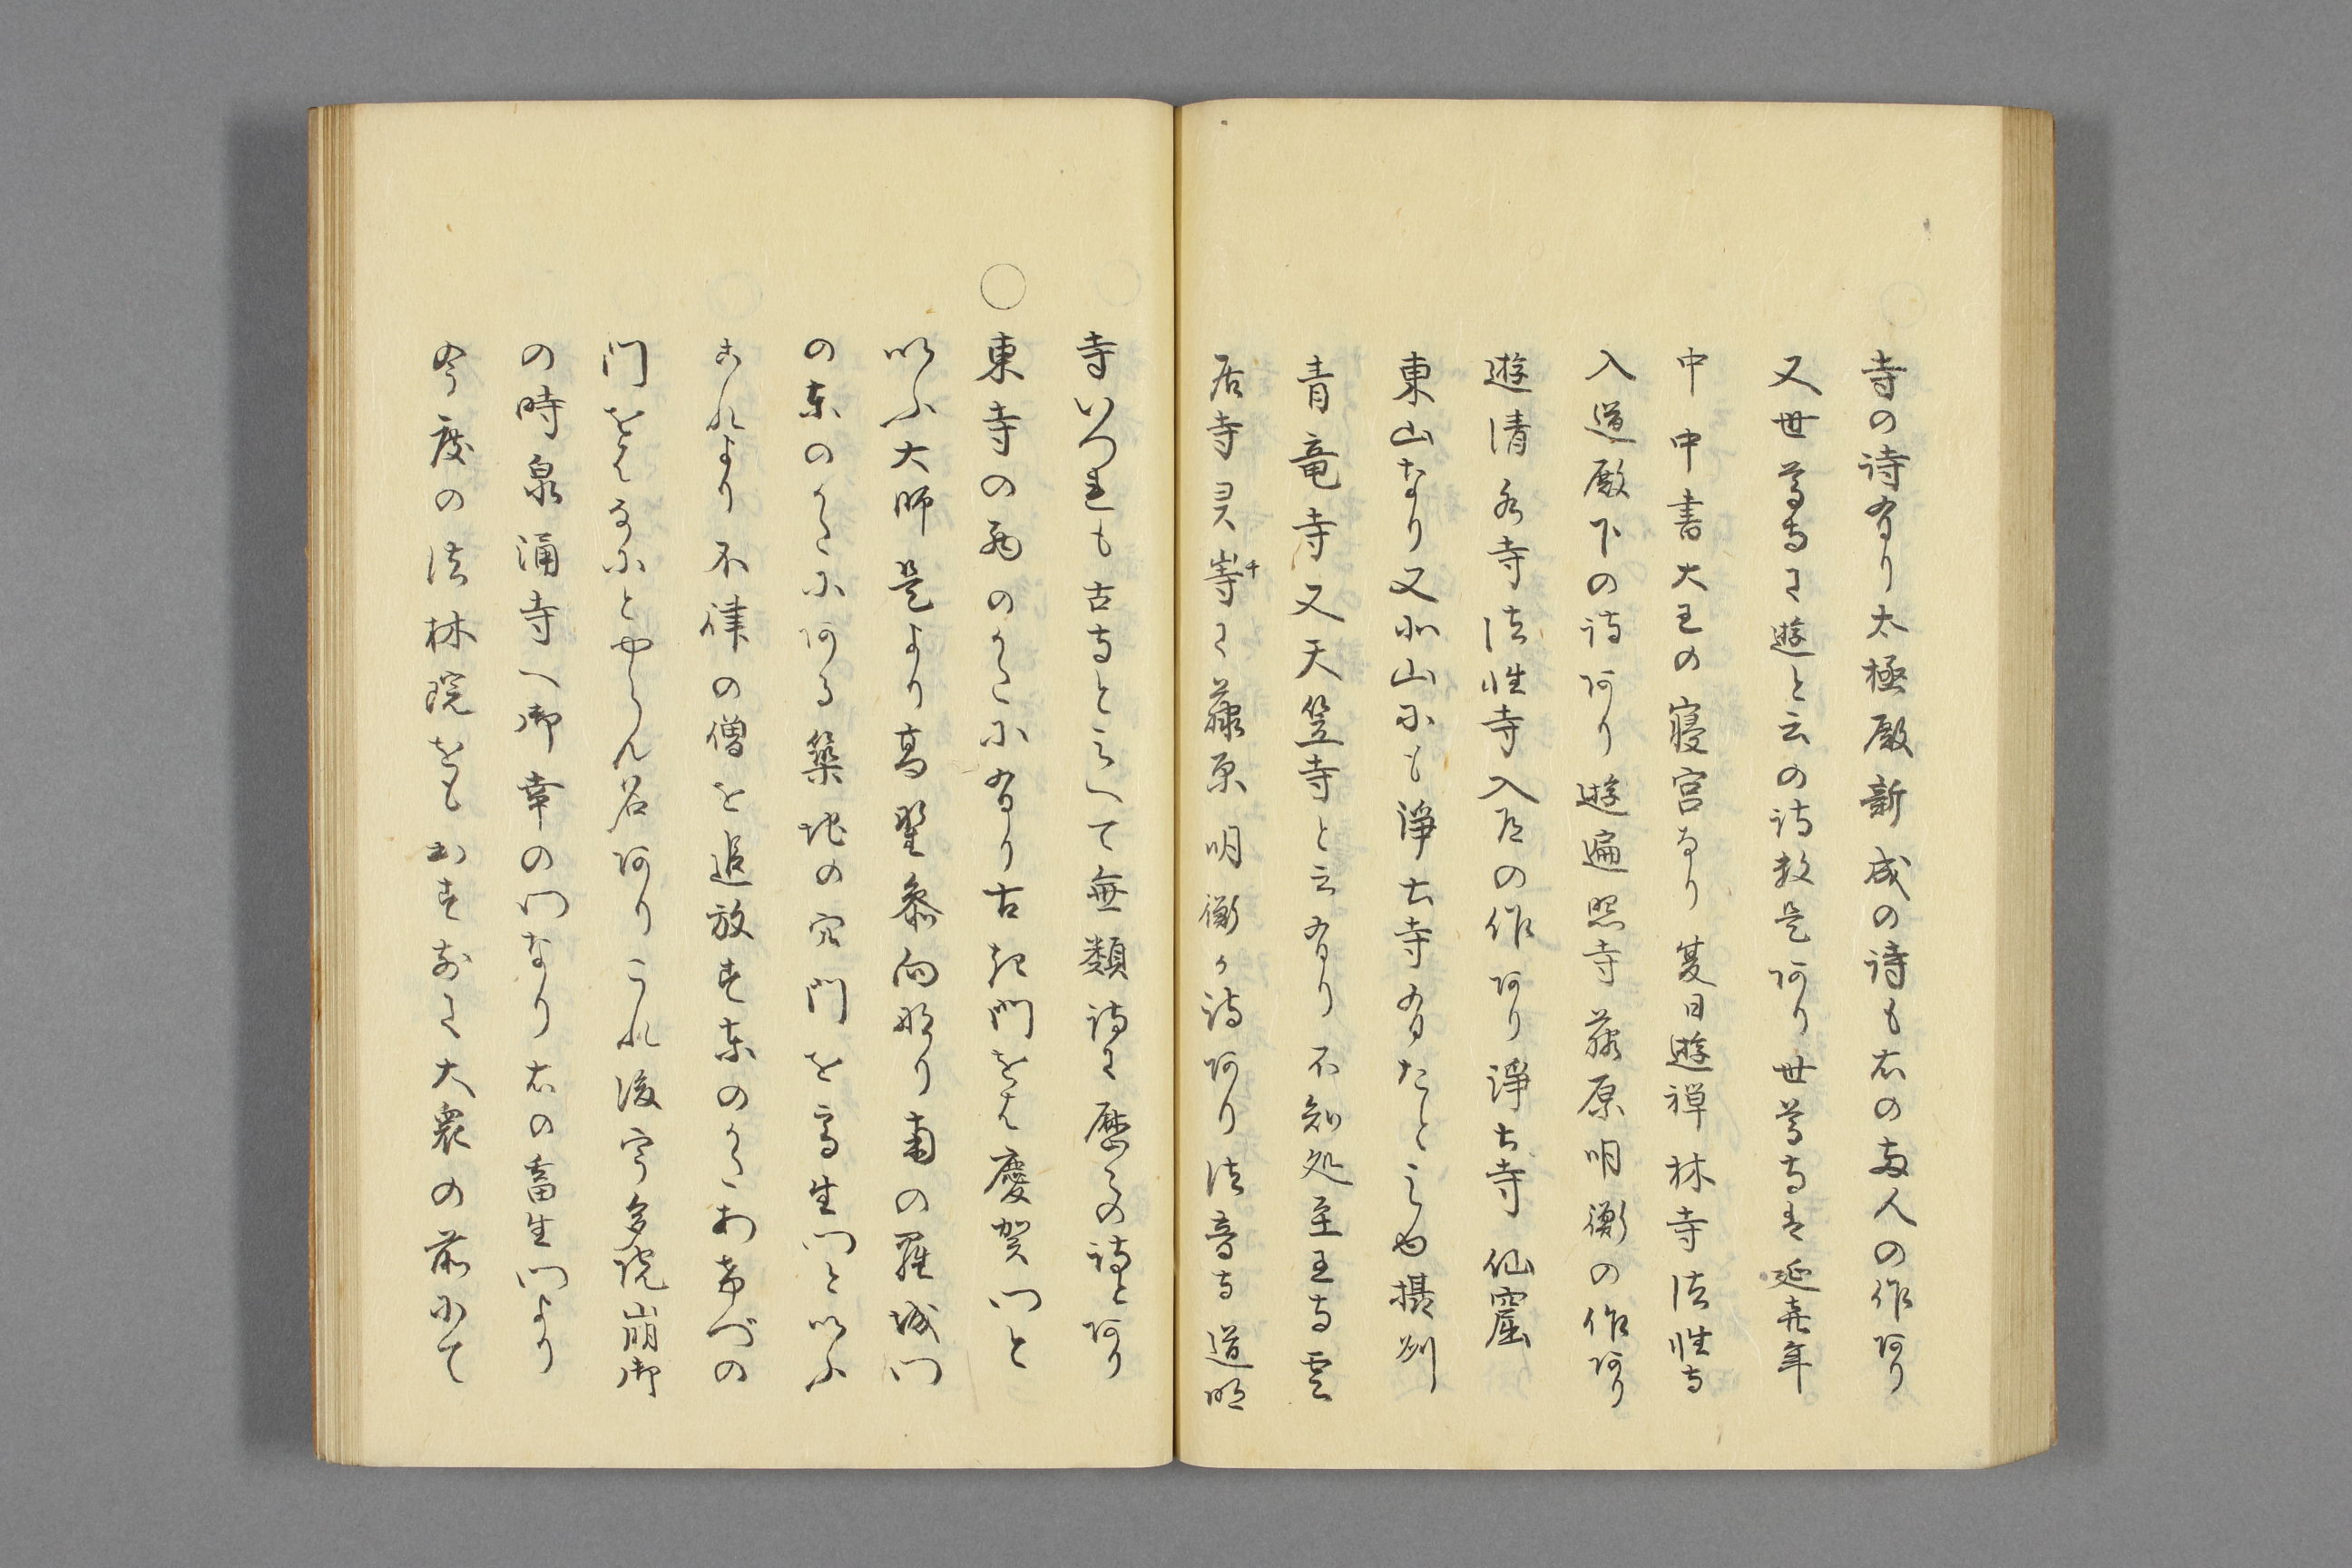 寺の詩有り太極殿新成の詩も右の両人の作阿り
又世尊寺に遊と云の詩数是阿り世尊寺は延㐂年
中中書大王の寝宮なり夏日遊禅林寺法性寺
入道殿下の詩阿り遊遍照寺藤原明衡の作阿り
遊清水寺法性寺入道の作阿り浄土寺仙窟
東山なり又北山にも浄土寺有たと云也摂州
青竜寺又天笠寺と云有り不知処至王寺雲
居寺灵寺に藤原明衡か詩阿り法音寺道明
寺いつれも古寺と云へて無類詩に歴々の詩と阿り
○東寺の西のかたに有り古記門をは慶賀門と
以ふ大師是より高聖参向始り南の羅城門
の東のかたに阿る築地の穴門を畜生門と以ふ
これより不律の僧を追放す東のかた打帯づの
門をはなにとやらん名阿りこれ後宇多院崩御
の時泉涌寺へ御幸の門なり右の畜生門より
今度の法林院をも出すなに大衆の前にて